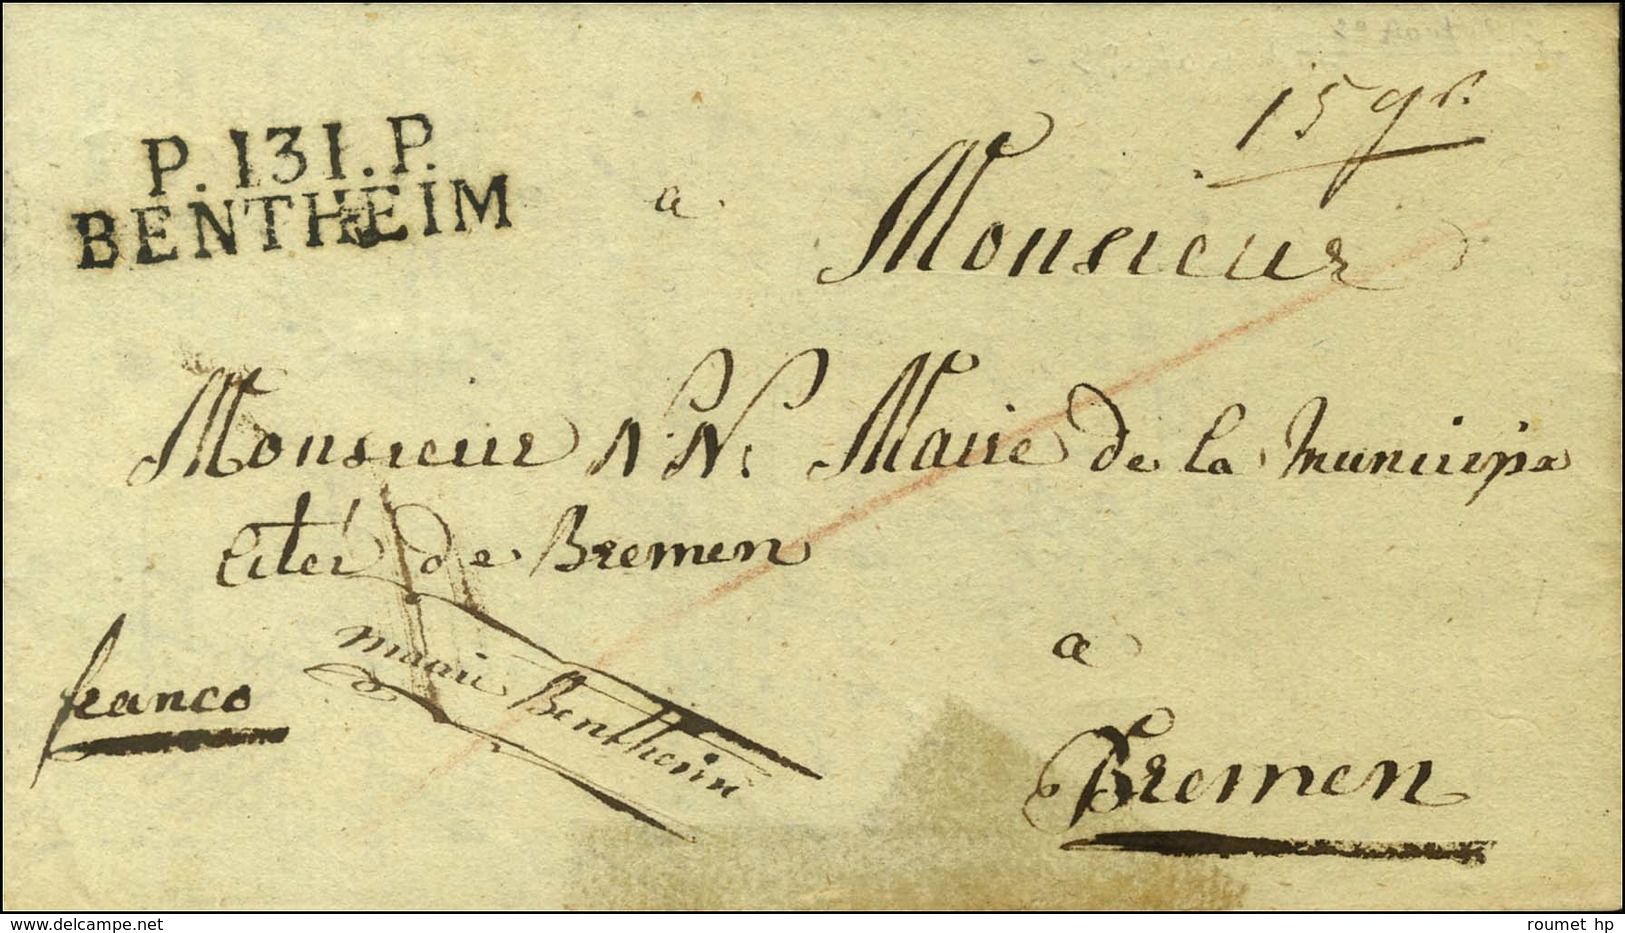 P. 131. P.
BENTHEIM
15 gr.
a
Monsieur
Monsieur N. N. Maire de la Municipa
lité de Bremen
franco
mairie Bentheim
a
Bremen
roumet hp